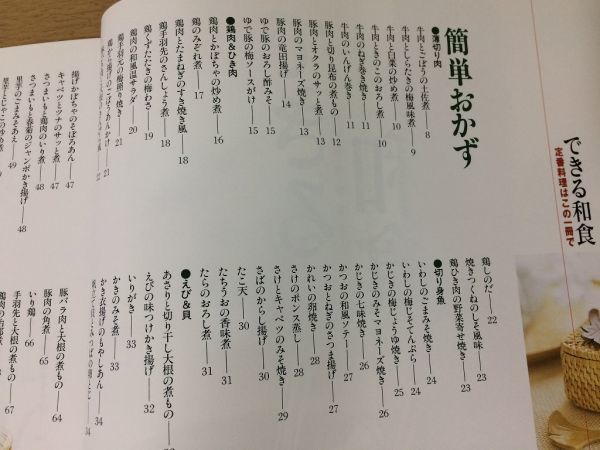 できる和食
定番料理はこの一冊で
簡単おかず
●薄切り肉
牛肉とごぼうの土佐煮 8
牛肉としらたきの梅風味煮 9
牛肉と白菜の炒め煮 10
牛肉ときのこのおろし煮 10
牛肉のねぎ巻き焼き 11
牛肉のいんげん巻き 11
豚肉と切り昆布の煮もの 12
豚肉とオクラのサッと煮 13
豚肉のマヨネーズ焼き 13
豚肉の竜田揚げ 14
ゆで豚のおろし酢みそ 15
ゆで豚の梅ソースがけ 15
●鶏肉&ひき肉
鶏肉とかぼちゃの炒め煮 16
鶏のみぞれ煮 17
鶏肉とたまねぎのすき焼き風 18
鶏手羽先のさんしょう煮 18
鶏くずたたきの梅わさ 19
鶏肉の和風温サラダ 20
鶏手羽元の梅照り焼き 21
鶏から揚げのごぼうあんかけ 21
鶏しのだ 22
焼きつくねのしそ風味 23
鶏ひき肉の野菜寄せ焼き 23
●切り身魚
いわしのごまみそ焼き 24
いわしの梅じそてんぷら 24
かじきの梅じょうゆ焼き 25
かじきのみそマヨネーズ焼き 26
かじきの七味焼き 26
かつおの和風ソテー 27
かつおとねぎのさつま揚げ 27
かれいの卵焼き 28
さけのポンス蒸し 28
さけとキャベツのみそ焼き 29
さばのからし揚げ 30
たこ天 30
たちうおの香味煮 31
たらのおろし煮 31
●えび&貝
あさりと切り干し大根の煮もの
えびの味つけかき揚げ 32
いりがき 33
かきのみそ煮 33
かき衣揚げのもやしあん 34
揚げかぼちゃのそぼろあん 47
キャベツとツナのサッと煮 47
さつまいもと鶏肉のいり煮 48
さつまいもと春菊のジャンボかき揚げ 48
里芋のごまみそあえ 49
里芋とじゃこの炒め煮
豚バラ肉と大根の煮もの 64
豚肉の角煮 65
いり鶏 66
手羽先と大根の煮もの 67